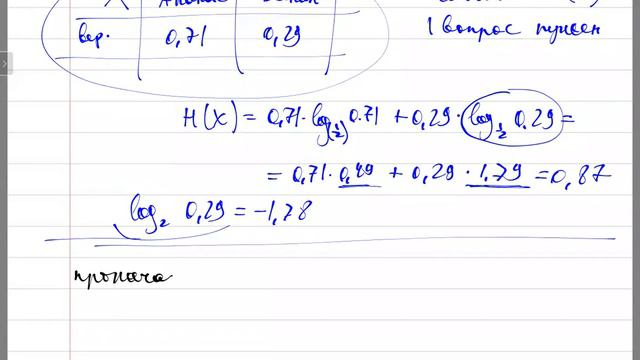 вер. 0,71 0,29
1 вопрос нужен
H(X) = 0,71·log(1/2) 0.71 + 0,29·log 1/2 0.29 =
= 0,71·0,49 + 0,29·1,79 = 0,87
log₂ 0,29 = -1,78